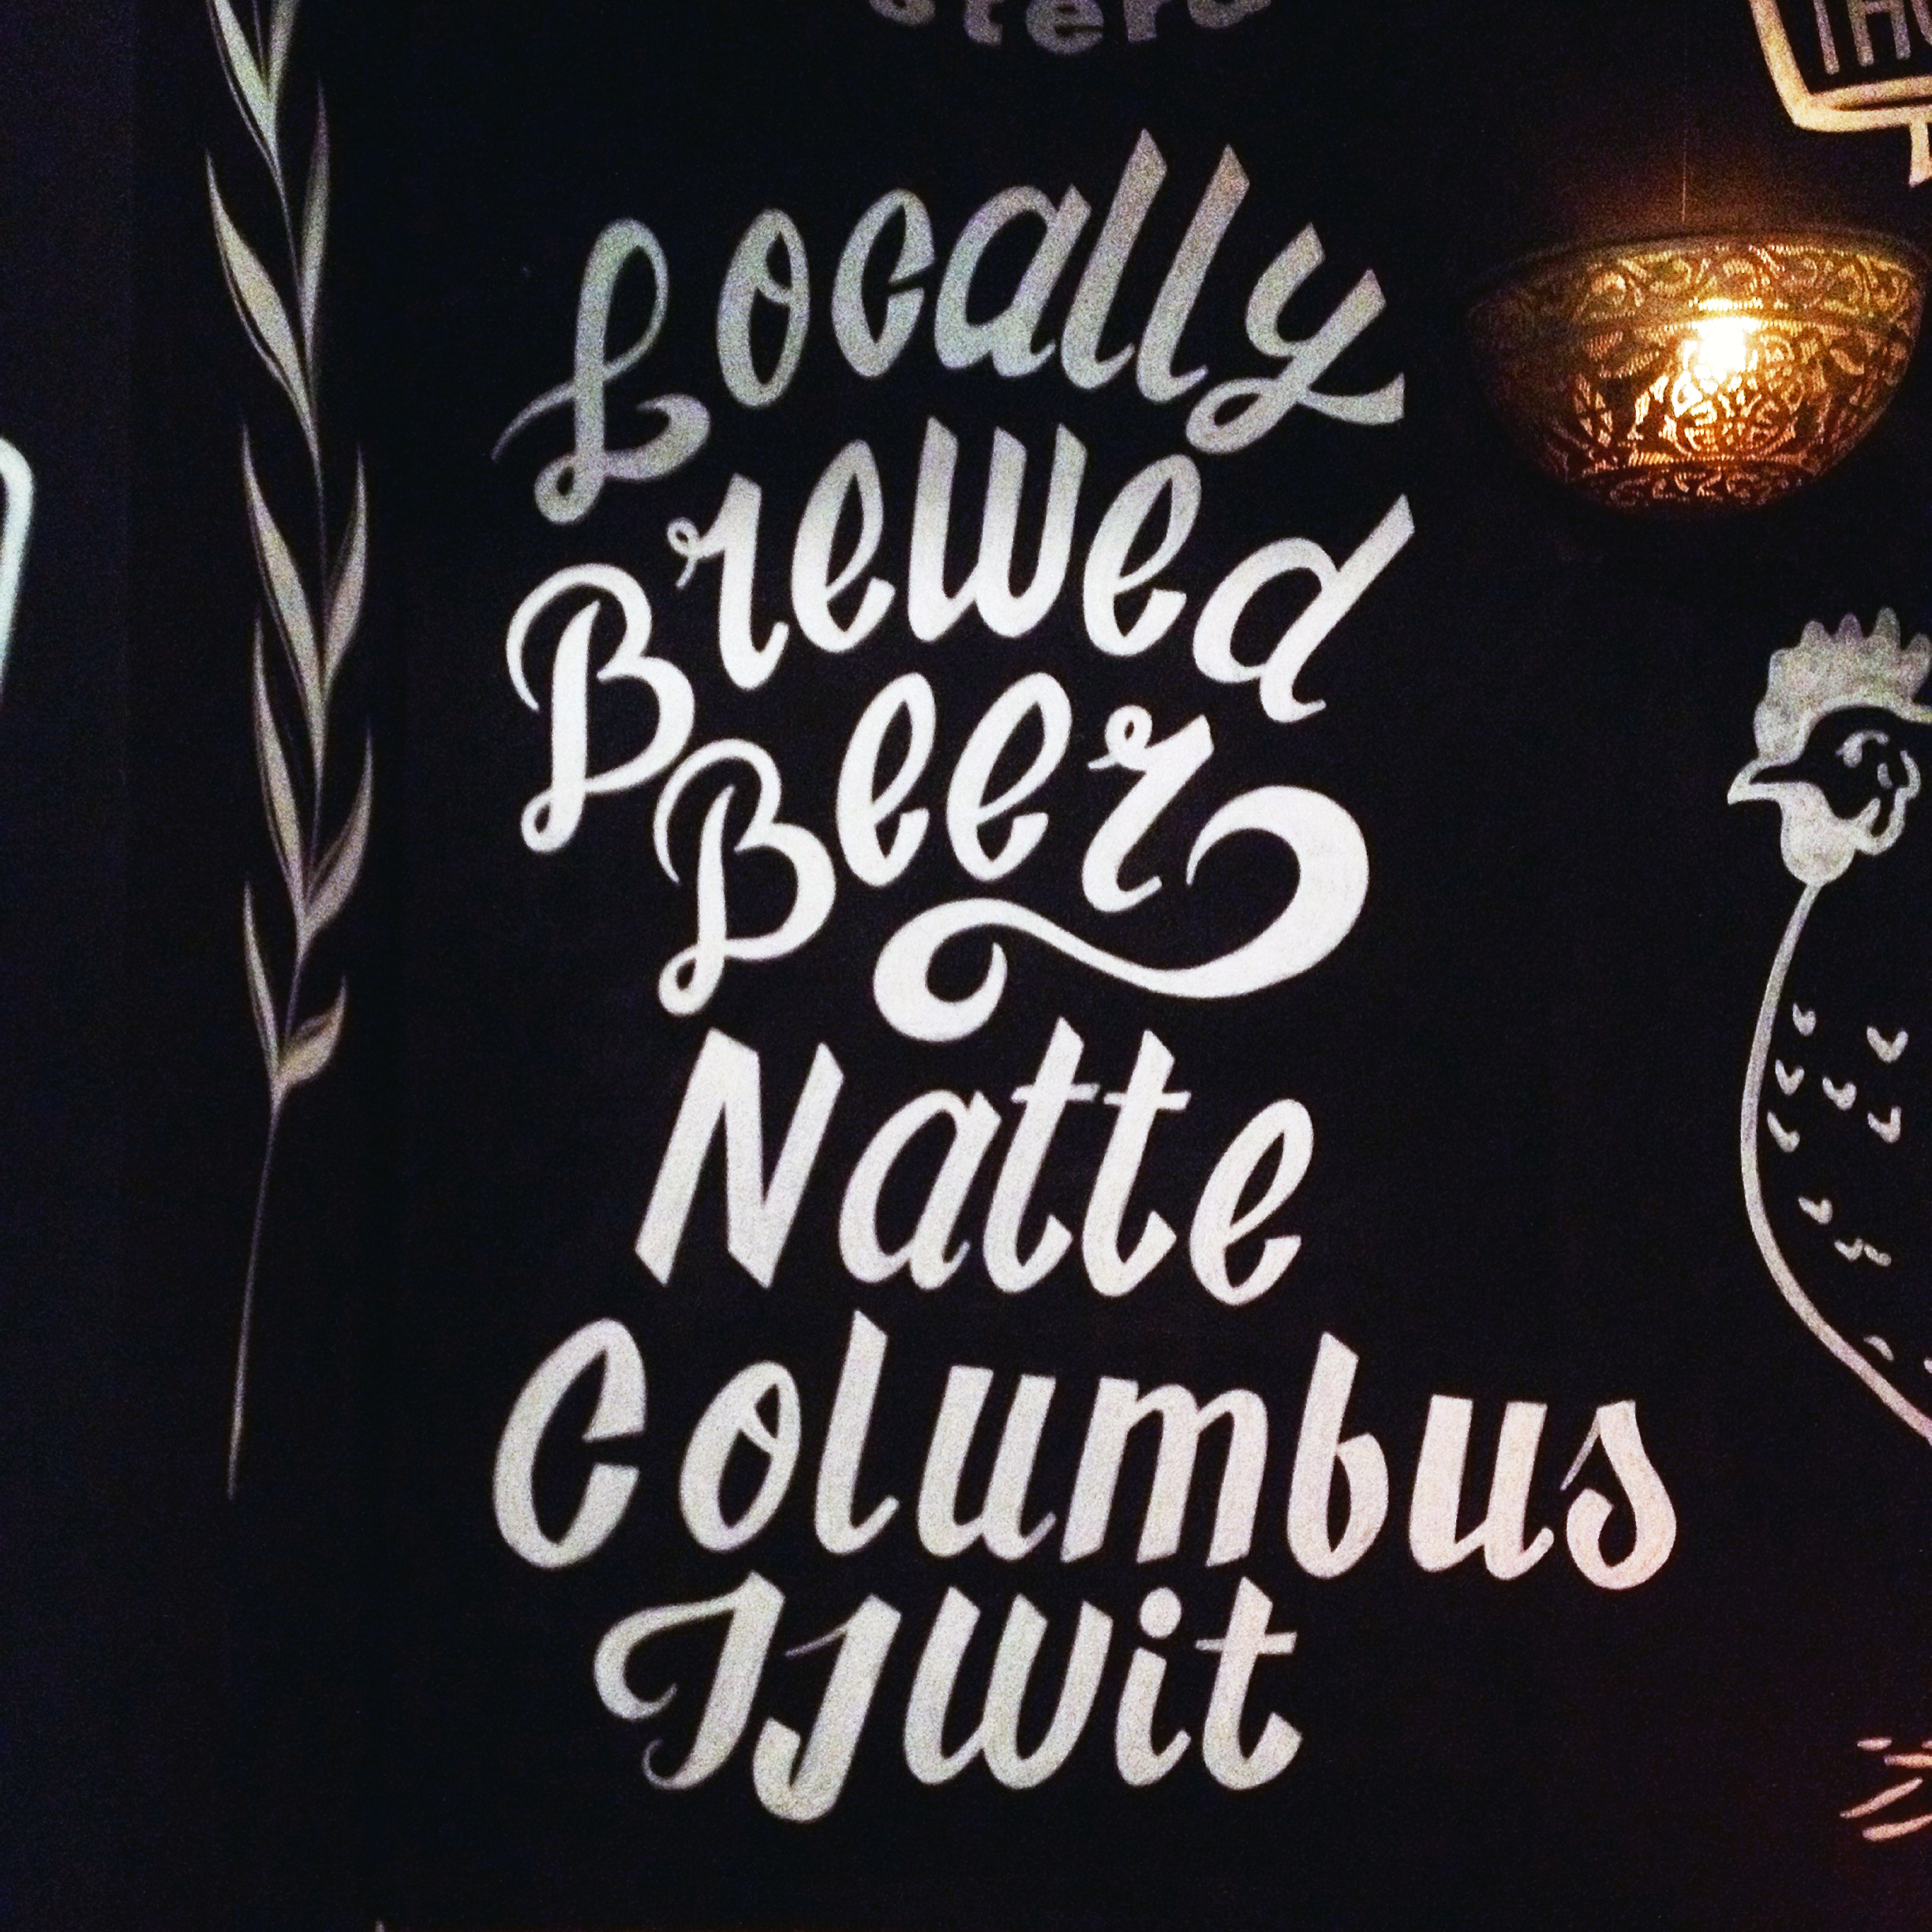 Locally
Brewed
Beer
Natte
Columbus
IJWit